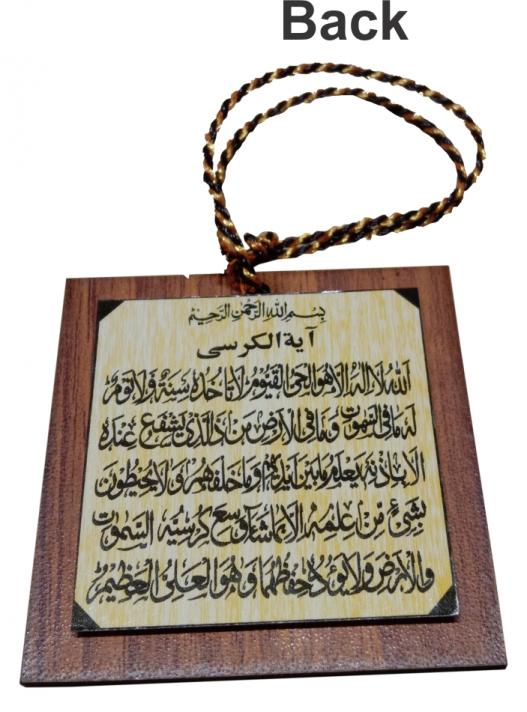 Back
بسم الله الرحمن الرحيم
آية الكرسى
الله لا اله الا هو الحى القيوم لا تاخذه سنة ولا نوم
له ما فى السموت وما فى الارض من ذالذى يشفع عنده
الا باذنه يعلم ما بين ايديهم وما خلفهم ولا يحيطون
بشىء من علمه الا بما شاء وسع كرسيه السموت
والارض ولا يؤده حفظهما وهو العلى العظيم